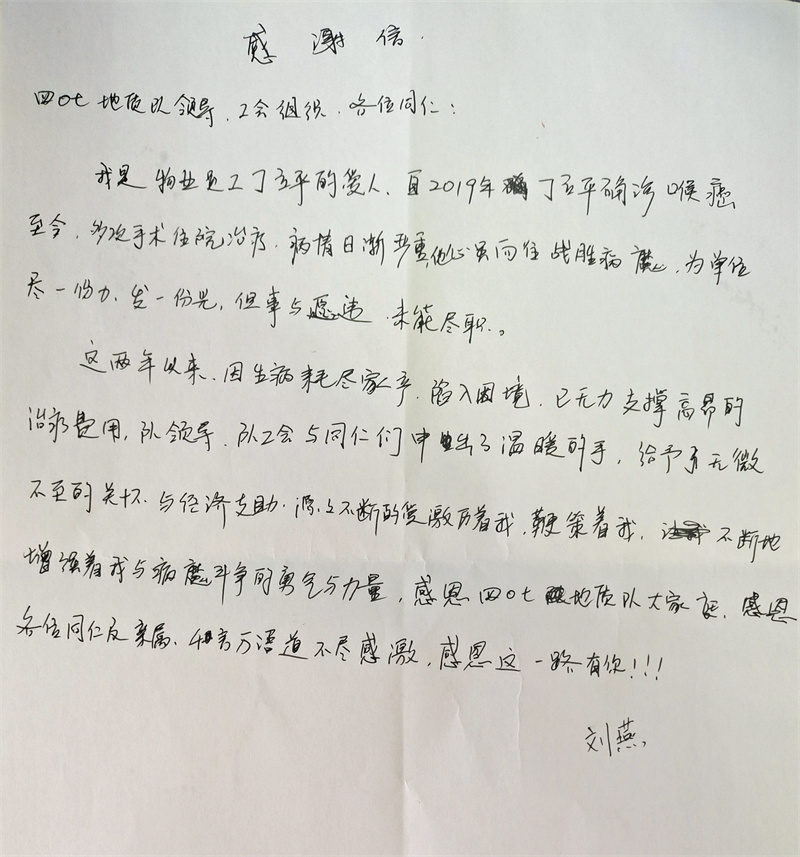 感谢信.
四〇七地质队领导、工会组织、各位同仁:
我是物业员工丁立平的爱人、自2019年丁立平确诊喉癌
至今、多次手术住院治疗、病情日渐严重,他心虽向往战胜病魔、为单位
尽一份力、发一份光,但事与愿违、未能尽职。
这两年以来、因生病耗尽家产、陷入困境、已无力支撑高昂的
治疗费用,队领导、队工会与同仁们伸出了温暖的手,给予了无微
不至的关怀与经济支助、源源不断的爱激励着我,鞭策着我,不断地
增强着我与病魔斗争的勇气与力量,感恩四〇七地质队大家庭、感恩
各位同仁及亲属、千言万语道不尽感激,感恩这一路有你!!!
刘燕